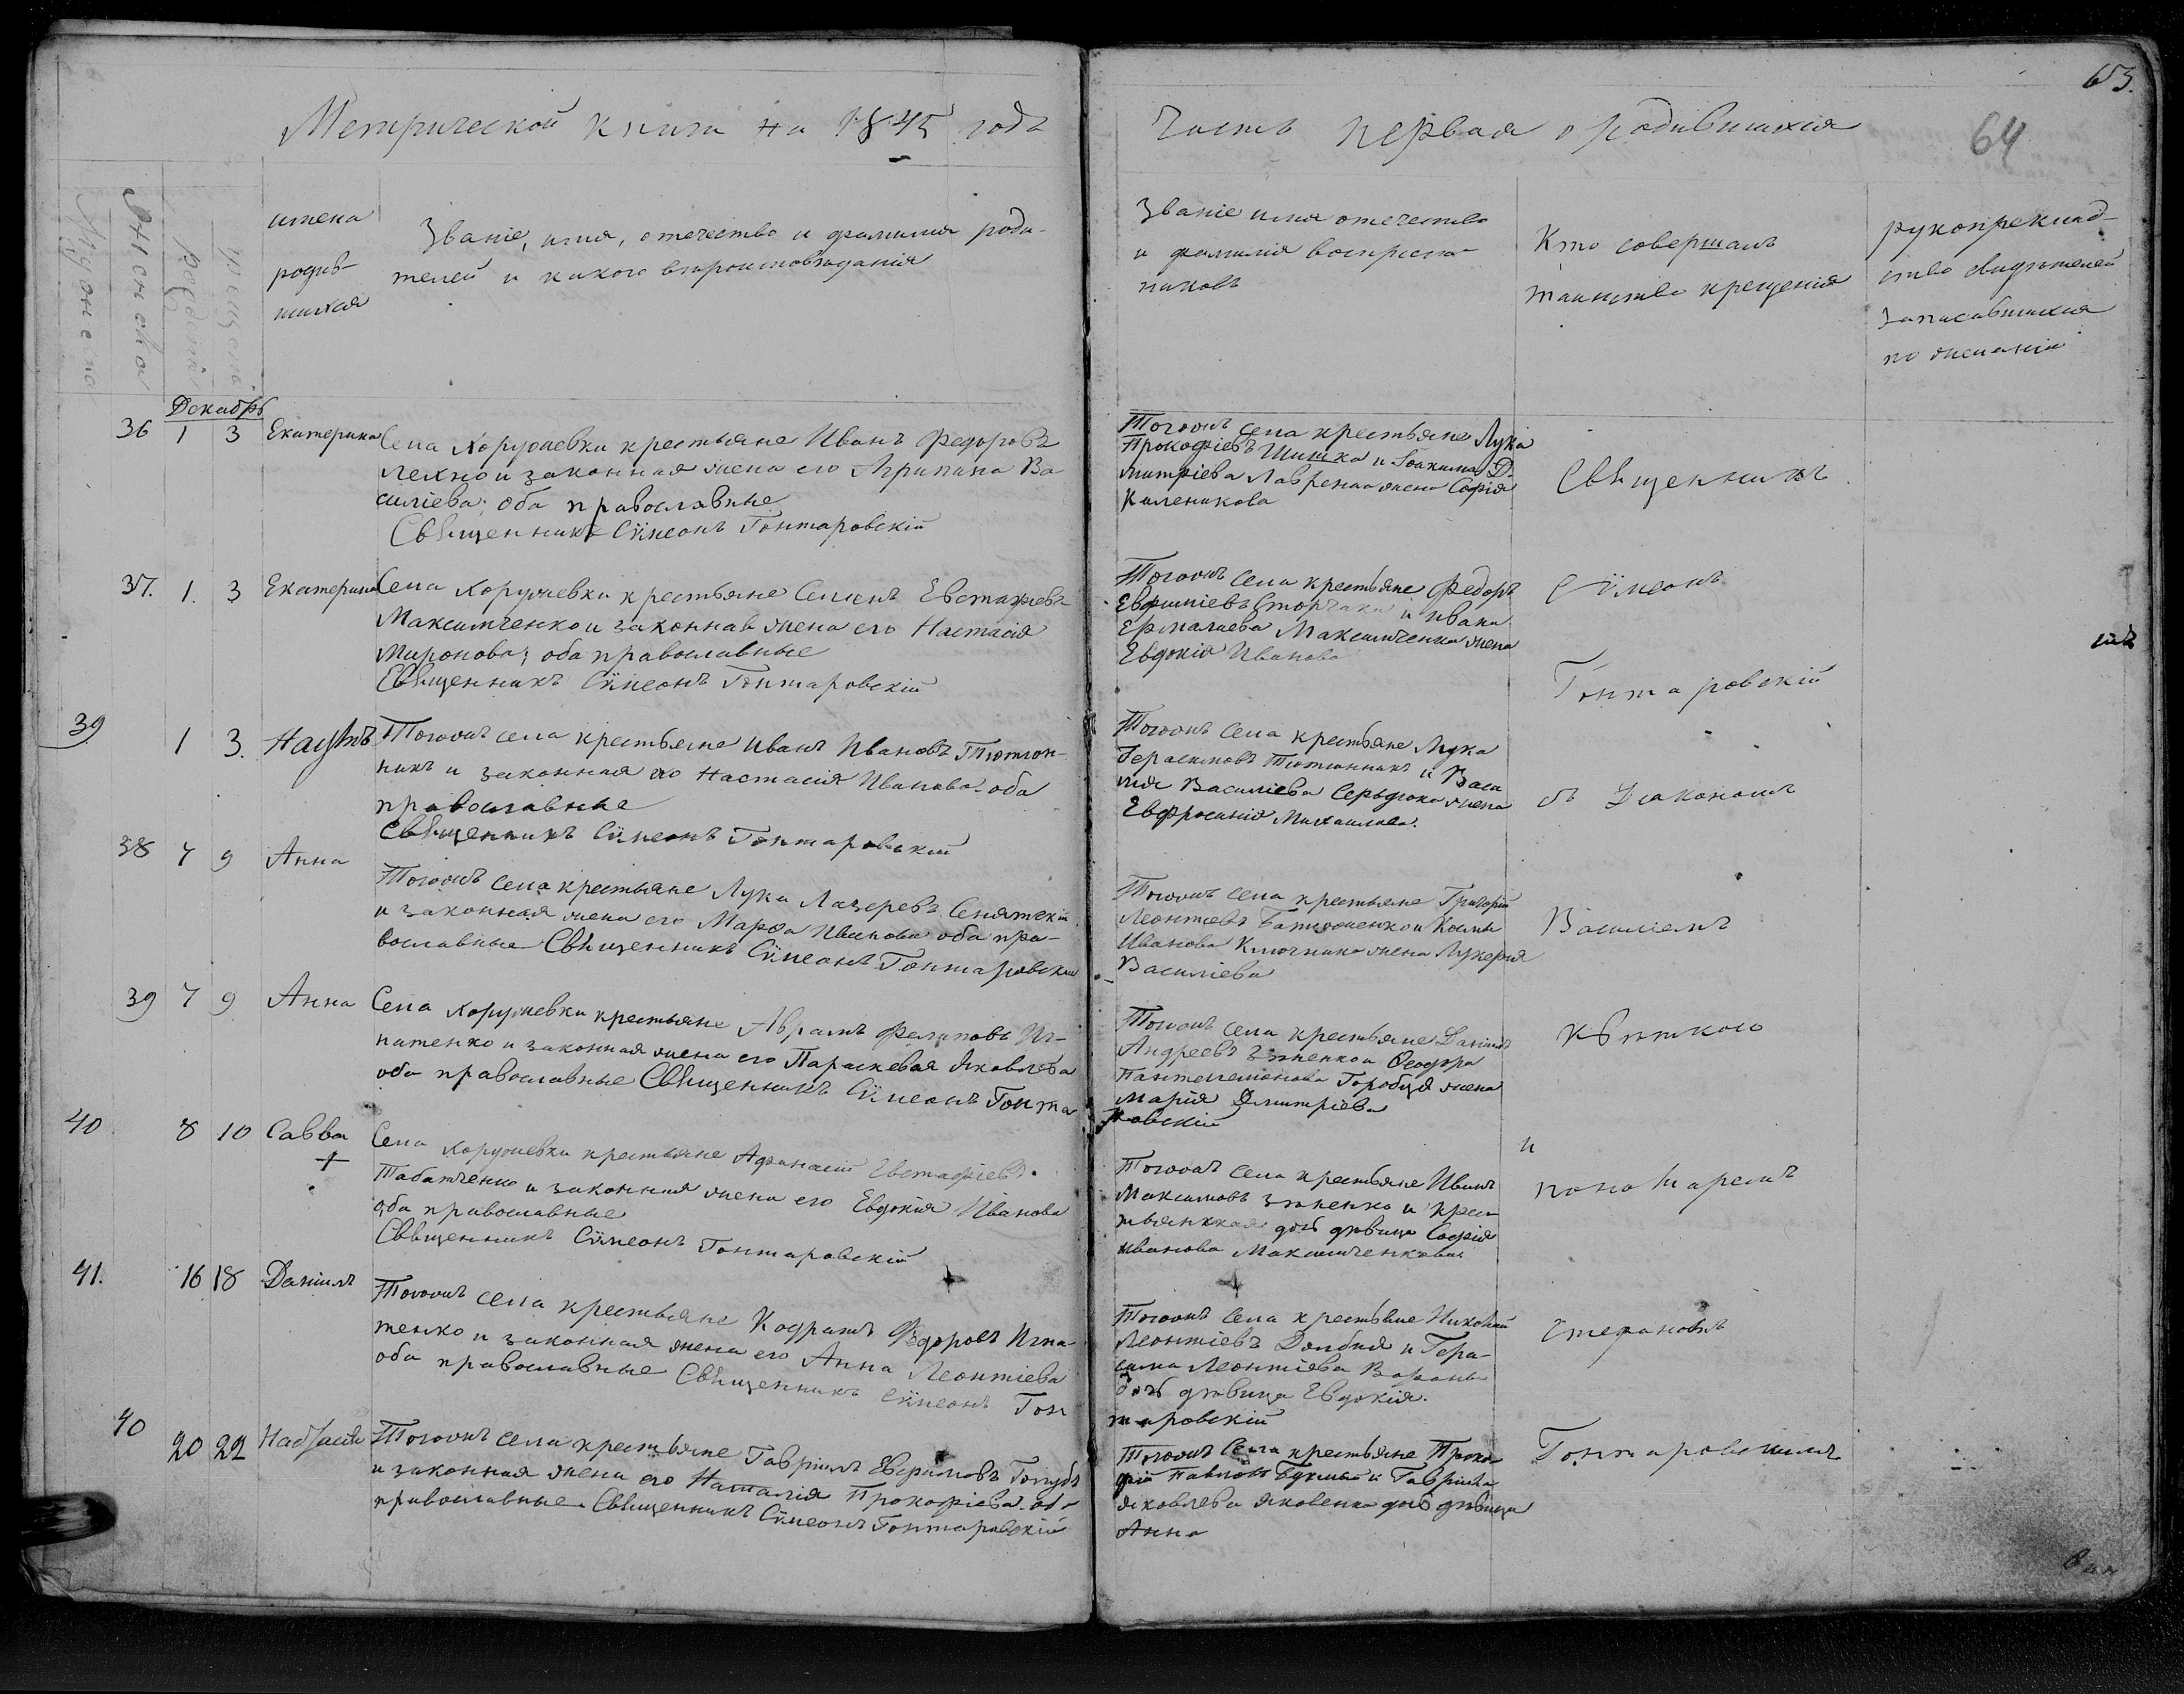 653.
64
Метрической книги на 1845 года
Часть первая о родившихся
Мужеска
Женска
рождені
крещені
имена
родив-
шихся
Званіе, имя, отечество и фамилия роди-
телей и какого вѣроисповѣданія
Званіе имя отечество
и фамилія воспріем-
никовъ
Кто совершалъ
таинство крещенія
рукоприклад-
ство свидѣтелей
записавшихся
по желанію
Декабрь
36 1 3 Екатерина
Села Хоружевки крестьяне Иванъ Федоровъ
Лехно и законная жена его Агрипина Ва-
силіева; оба православные
Священникъ Сѵмеонъ Гонтаровскій
Тогожъ села крестьяне Лука
Прокофіевъ Шишка и Іоакима Д-
митріева Лавренка жена Софія
Каленикова
37. 1. 3 Екатерина
Села Хоружевки крестьяне Семенъ Евстафіевъ
Максимченко и законная жена его Настасія
Миронова; оба православные
Священникъ Сѵмеонъ Гонтаровскій
Тогожъ села крестьяне Федоръ
Евфиміевъ Сторчака и Ивана
Ермолаева Максимченка жена
Евдокія Иванова
39 1 3. Наумъ
Тогожъ села крестьяне Иванъ Ивановъ Тютюн-
никъ и законная его Настасія Иванова оба
православные
Священникъ Сѵмеонъ Гонтаровскій
Тогожъ села крестьяне Лука
Герасимовъ Тютюнникъ и Васи
лія Василіева Сердюка жена
Евфросинія Михаилова.
38 7 9 Анна
Тогожъ села крестьяне Лука Лазеревъ
и законная жена его Марфа Иванова оба пра-
вославные Священникъ Сѵмеонъ Гонтаровскій
Тогожъ села крестьяне Григорій
Леонтіевъ и Космы
Иванова Ключника жена Лукерія
Василіева
39 7 9 Анна
Села Хоружевки крестьяне Аврамъ Филиповъ Иг-
натенко и законная жена его Параскевая Яковлева
оба православные Священникъ Сѵмеонъ Гонта
Тогожъ села крестьяне Даніилъ
Андреевъ Зѣненко и Феодора
Пантелеимонова Горобця жена
Марія Дмитріева
ровскій
40 8 10 Савва
Села Хоружевки крестьяне Афанасій Евстафіевъ
Табатченко и законная жена его Евдокія Иванова
оба православные
Священникъ Сѵмеонъ Гонтаровскій
Тогожъ села крестьяне Иванъ
Максимовъ Зѣненко и крес-
тьянская дочь дѣвица Софія
Иванова Максимченкова
41. 16 18 Даніилъ
Тогожъ села крестьяне Кодратъ Федоровъ Игна-
тенко и законная жена его Анна Леонтіева
оба православные Священникъ Сѵмеонъ Гон
Тогожъ села крестьяне Николай
Леонтіевъ Довбня и Гера-
сима Леонтіева Вороны
дочь дѣвица Евдокія.
таровскій
40 20 22
Тогожъ села крестьяне Гавріилъ Ефимовъ Голубъ
и законная жена его Наталія Прокофіева оба
православные Священникъ Сѵмеонъ Гонтаровскій
Тогожъ села крестьяне Проко-
фій Павловъ и Гавріила
Яковлева Яковенка дочь дѣвица
Анна
Священникъ
Сѵмеонъ
Гонтаровскій
съ Діакономъ
Василіемъ
Квѣткою
и
пономаремъ
Стефаномъ
Гонтаровскимъ